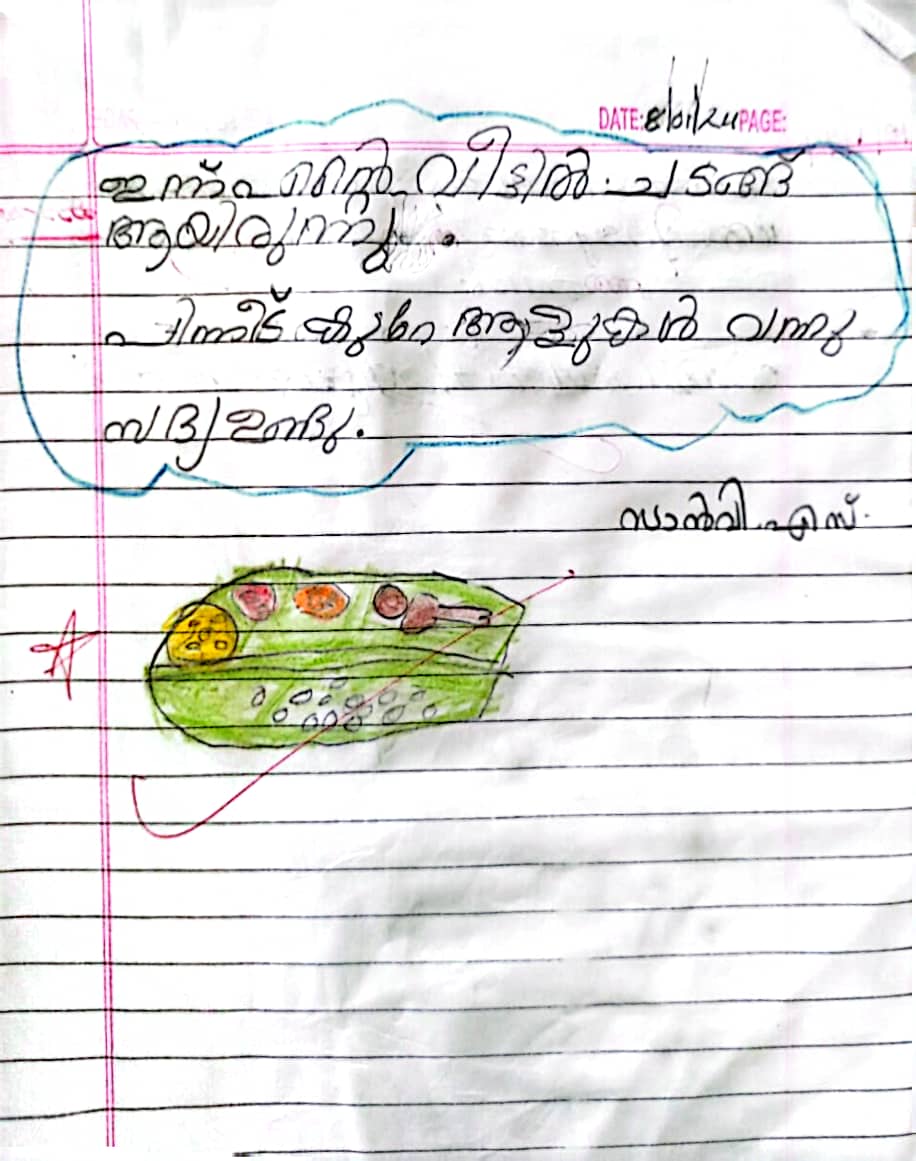 DATE: 8/01/24 PAGE:
ഇന്ന് എന്റെ വീട്ടിൽ ചടങ്ങ്
ആയിരുന്നു.
പിന്നീട് കുറെ ആളുകൾ വന്നു
സദ്യ ഉണ്ടു.
സാൻവി എസ്.